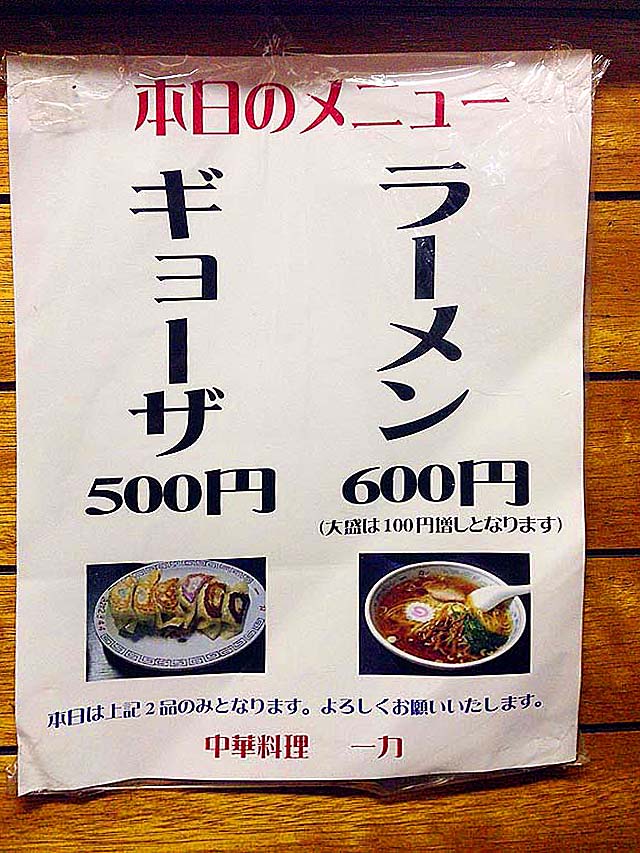 本日のメニュー
ラーメン
600円
(大盛は100円増しとなります)
ギョーザ
500円
本日は上記2品のみとなります。よろしくお願いいたします。
中華料理 一力